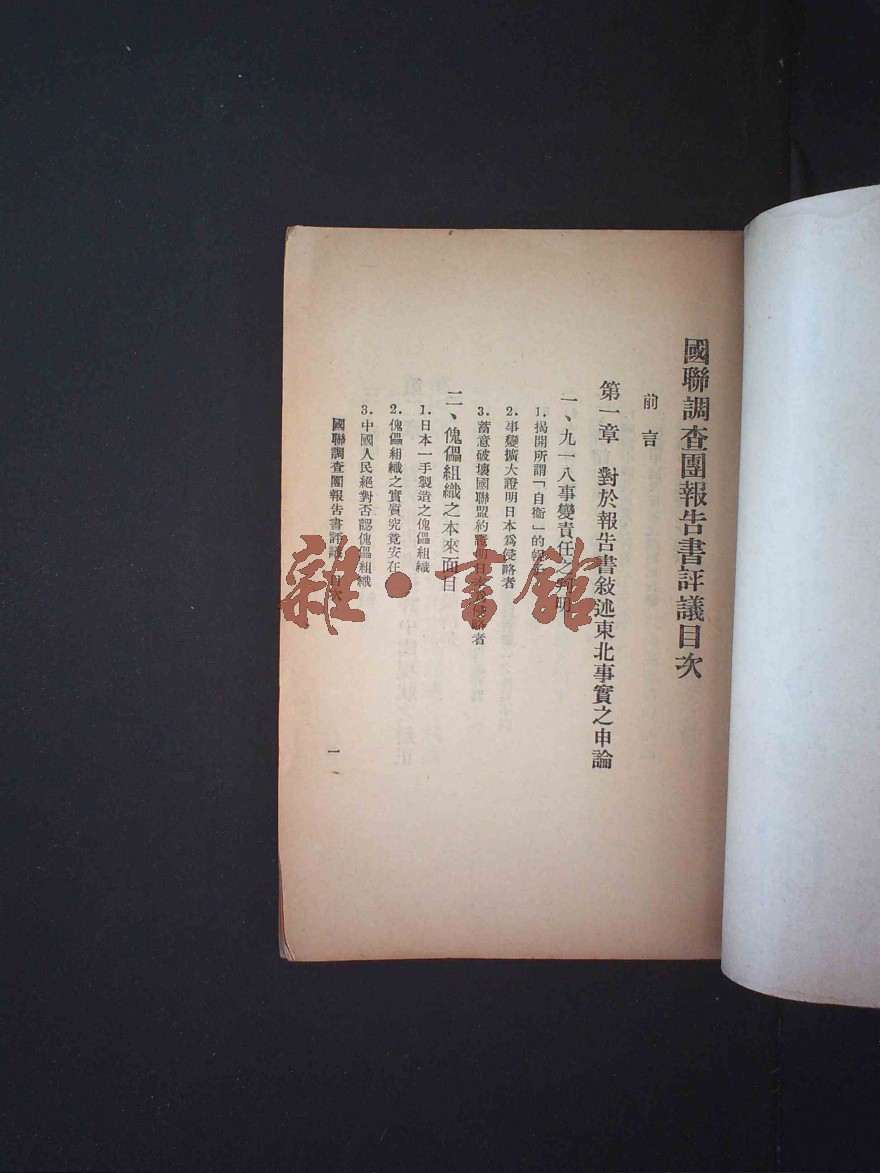 國聯調查團報告書評議目次
前言
第一章 對於報告書敍述東北事實之申論
一、九一八事變責任之判明
1.揭開所謂「自衞」的
2.事變擴大證明日本爲侵略者
3.蓄意破壞國聯盟約證明日本爲侵略者
二、傀儡組織之本來面目
1.日本一手製造之傀儡組織
2.傀儡組織之實質究竟安在
3.中國人民絕對否認傀儡組織
國聯調查團報告書評議 目次
一
雜·書館